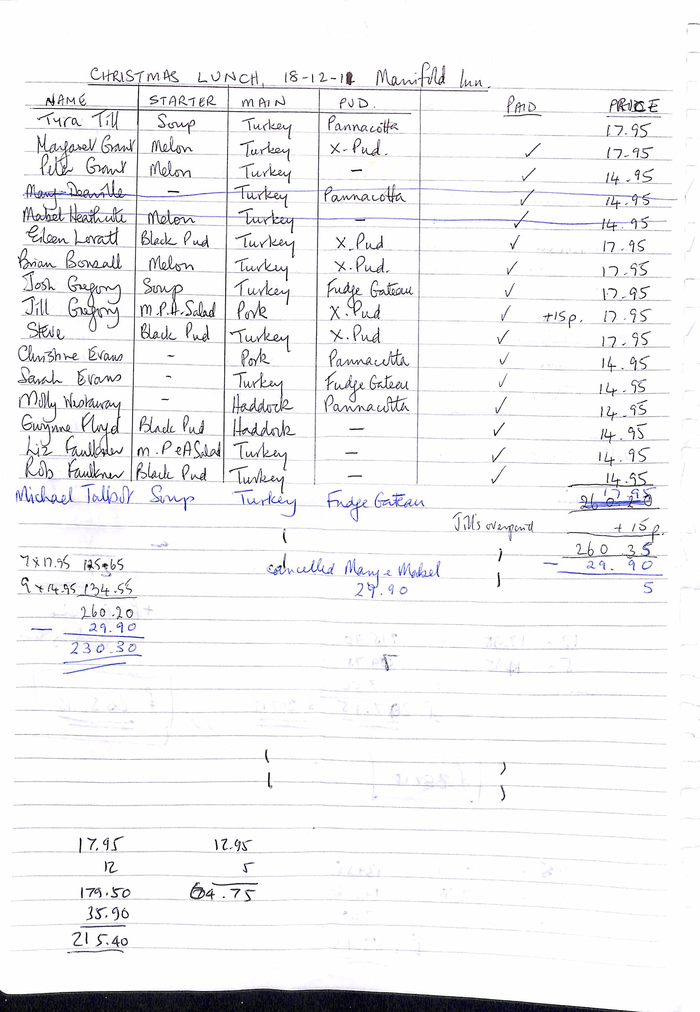 CHRISTMAS LUNCH, 18-12-11 Manifold Inn.
NAME STARTER MAIN PUD. PAID PRICE
Tyra Till Soup Turkey Pannacotta 17.95
Margaret Grant Melon Turkey X.Pud. ✓ 17.95
Peter Grant Melon Turkey — ✓ 14.95
Mary Deaville — Turkey Pannacotta ✓ 14.95
Mabel Heathcote Melon Turkey — ✓ 14.95
Eileen Lovatt Black Pud Turkey X.Pud ✓ 17.95
Brian Bonsall Melon Turkey X.Pud. ✓ 17.95
Josh Gregory Soup Turkey Fudge Gateau ✓ 17.95
Jill Gregory M.P.A.Salad Pork X.Pud ✓ +15p. 17.95
Steve Black Pud Turkey X.Pud ✓ 17.95
Christine Evans - Pork Pannacotta ✓ 14.95
Sarah Evans - Turkey Fudge Gateau ✓ 14.95
Molly Westaway - Haddock Pannacotta ✓ 14.95
Gwynne Floyd Black Pud Haddock — ✓ 14.95
Liz Faulkner M.P&A Salad Turkey — ✓ 14.95
Rob Faulkner Black Pud Turkey — ✓ 14.95
Michael Talbot Soup Turkey Fudge Gateau 17.95
260 20
Jill's overpaid +15p.
260 35
7 x 17.95 125.65 cancelled Mary & Mabel - 29.90
9 x 14.95 134.55 29.90 5
260.20
- 29.90
230.30
17.95 12.95
12 5
179.50 64.75
35.90
215.40